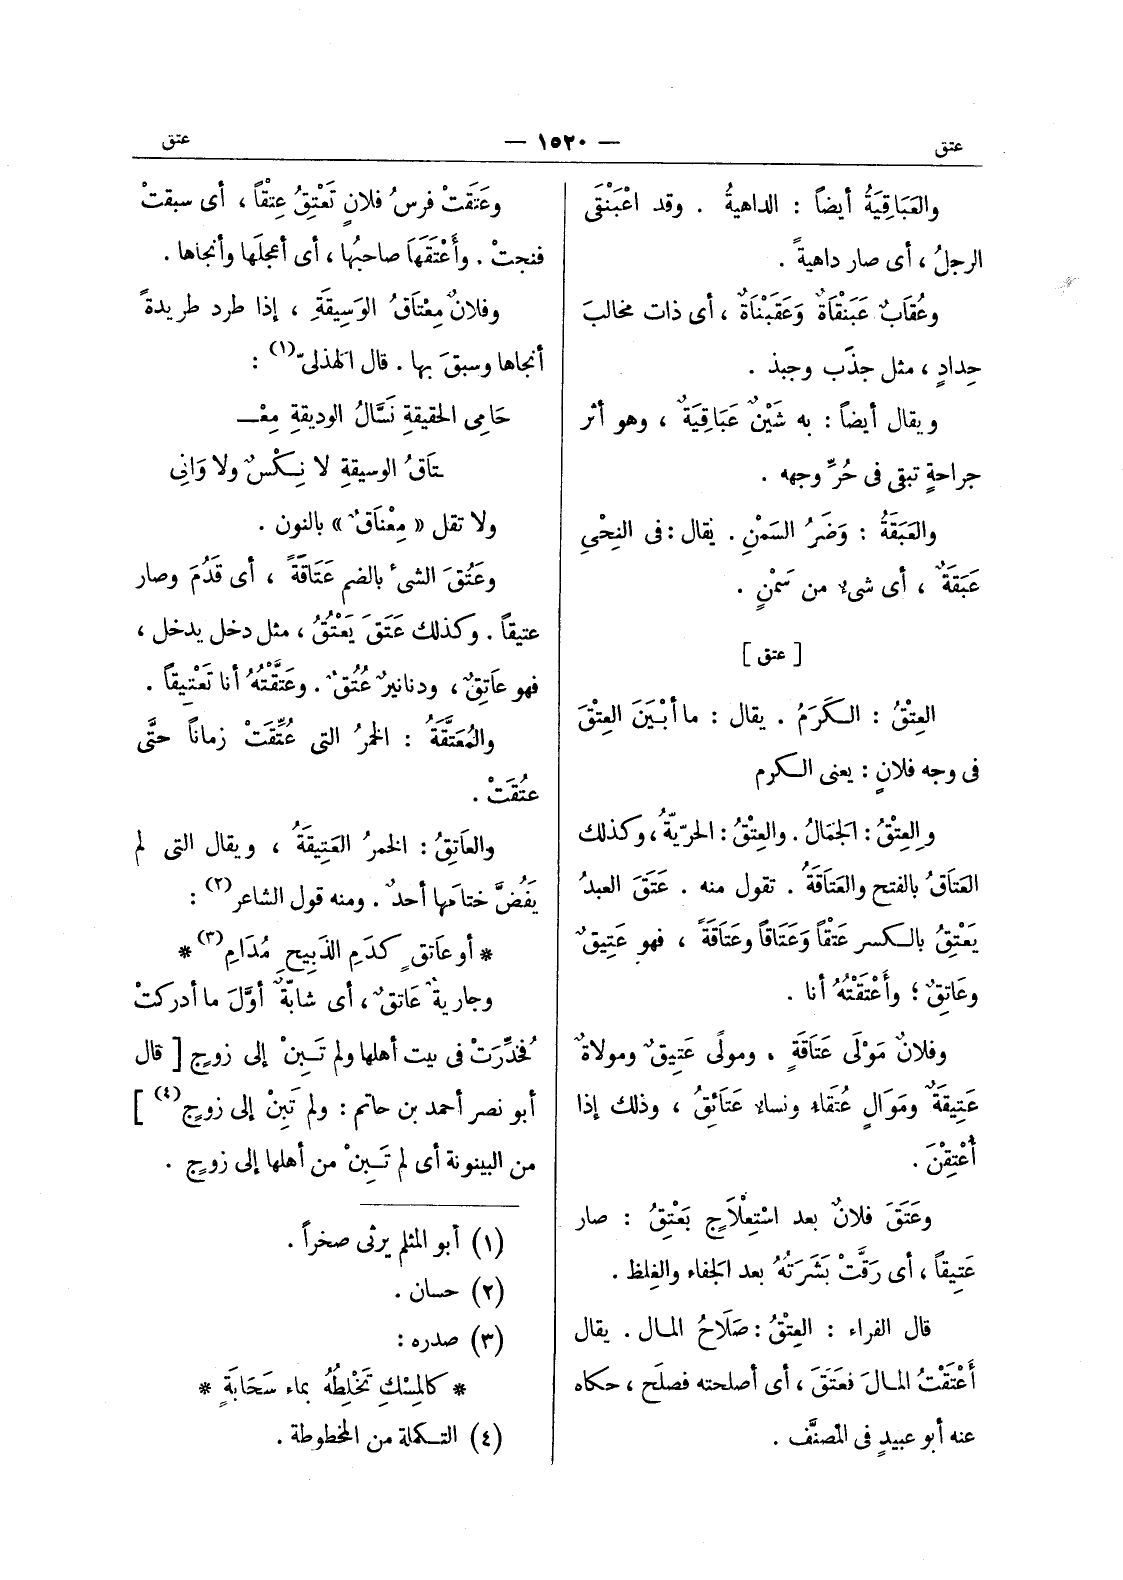 عتق
— ١٥٢٠ —
عتق
والعَبَاقِيَةُ أيضاً : الداهيةُ . وقد اعْبَنْقَى
الرجلُ ، أى صار داهيةً .
وعُقَابٌ عَبَنْقَاةٌ وَعَقَبْنَاةٌ ، أى ذات مخالبَ
حِدادٍ ، مثل جذَب وجبذ .
ويقال أيضاً : به شَيْنٌ عَبَاقِيَةٌ ، وهو أثر
جراحةٍ تبقى فى حُرِّ وجهه .
والعَبَقَةُ : وَضَرُ السَمْنِ . يقال : فى النِحْىِ
عَبَقَةٌ ، أى شىء من سَمْنٍ .
[ عتق ]
العِتْقُ : الكَرَمُ . يقال : ما أَبْيَنَ العِتْقَ
فى وجه فلانٍ : يعنى الكرم
والعِتْقُ : الجَمَالُ . والعِتْقُ : الحرّيّةُ ، وكذلك
العَتَاقُ بالفتح والعَتَاقَةُ . تقول منه . عَتَقَ العبدُ
يَعْتِقُ بالكسر عَتْقاً وَعَتَاقاً وعَتَاقَةً ، فهو عَتِيقٌ
وعَاتِقٌ ؛ وأَعْتَقْتُهُ أنا .
وفلانٌ مَوْلَى عَتَاقَةٍ ، ومولًى عَتِيقٌ ومولاةٌ
عَتِيقَةٌ ومَوَالٍ عُتَقَاءِ ونساء عَتَائِقُ ، وذلك إذا
أُعْتِقْنَ .
وعَتَقَ فلانٌ بعد اسْتِعْلَاجٍ يَعْتِقُ : صار
عَتِيقاً ، أى رَقَّتْ بَشَرَتُهُ بعد الجفاء والغِلظ .
قال الفراء : العِتْقُ : صَلَاحُ المال . يقال
أَعْتَقْتُ المالَ فعَتَقَ ، أى أصلحته فصلَح ، حكاه
عنه أبو عبيدٍ فى المُصنَّف .
وعَتَقَتْ فرسُ فلانٍ تَعْتِقُ عِتْقاً ، أى سبقتْ
فنجتْ . وأَعْتَقَهَا صاحبُها ، أى أعجلَها وأنجاها .
وفلانٌ مِعْتَاقُ الوَسِيقَةِ ، إذا طرد طريدةً
أنجاها وسبقَ بها . قال الهذلىّ (١) :
حَامِى الحقيقةِ نَسَّالُ الوديقةِ مِعْـ
ـتاقُ الوسيقةِ لا نِكْسٌ ولا وَانِى
ولا تقل « مِعْنَاقٌ » بالنون .
وعَتُقَ الشىءُ بالضم عَتَاقَةً ، أى قَدُمَ وصار
عتيقاً . وكذلك عَتَقَ يَعْتُقُ ، مثل دخل يدخل ،
فهو عاَتِقٌ ، ودنانيرُ عُتُقٌ . وعَتَّقْتُهُ أنا تَعْتِيقاً .
والمُعَتَّقَةُ : الخمرُ التى عُتِّقَتْ زماناً حتَّى
عتُقَتْ .
والعَاتِقُ : الخمرُ العَتِيقَةُ ، ويقال التى لم
يَفُضَّ ختامَها أحدٌ . ومنه قول الشاعر (٢) :
* أو عَاتِقٍ كدَمِ الذَبِيحِ مُدَامِ (٣) *
وجاريةٌ عَاتقٌ ، أى شابّةٌ أوَّلَ ما أدركتْ
فخُدِّرَتْ فى بيت أهلها ولم تَبِنْ إلى زوجٍ [ قال
أبو نصر أحمد بن حاتم : ولم تَبِنْ إلى زوجٍ (٤) ]
من البينونة أى لم تَبِنْ من أهلها إلى زوجٍ .
(١) أبو المثلم يرثى صخراً .
(٢) حسان .
(٣) صدره :
* كالمِسْكِ تَخْلِطُهُ بماء سَحَابَةٍ *
(٤) التكملة من المخطوطة .